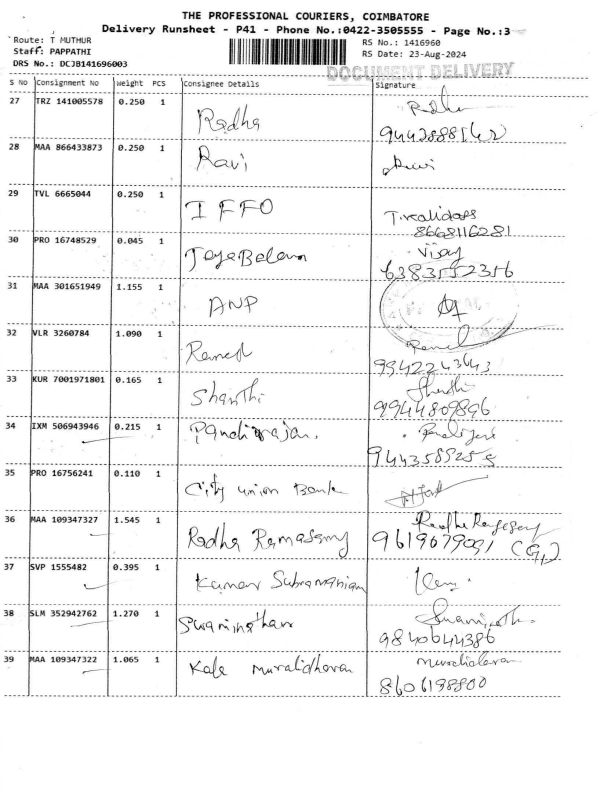 THE PROFESSIONAL COURIERS, COIMBATORE
Delivery Runsheet - P41 - Phone No.:0422-3505555 - Page No.:3
Route: T MUTHUR
Staff: PAPPATHI
DRS No.: DCJB141696003
RS No.: 1416960
RS Date: 23-Aug-2024
DOCUMENT DELIVERY
S No Consignment No Weight PCS Consignee Details Signature
27 TRZ 141005578 0.250 1 Radha
28 MAA 866433873 0.250 1 Ravi
29 TVL 6665044 0.250 1 IFFO T.kalidass
8668116281
30 PRO 16748529 0.045 1 JeyaBalan Vijay
6383552356
31 MAA 301651949 1.155 1 ANP
32 VLR 3260784 1.090 1 Ramesh
9942243643
33 KUR 7001971801 0.165 1 Shanthi Shanthi
9944809896
34 IXM 506943946 0.215 1 Pandiarajan.
9443589255
35 PRO 16756241 0.110 1 City union Bank
36 MAA 109347327 1.545 1 Radha Ramasamy
9619679091
37 SVP 1555482 0.395 1 Kumar Subramaniam
38 SLM 352942762 1.270 1 Swaminathan
9840644386
39 MAA 109347322 1.065 1 Kale Muralidharan Muralidaran
8606198800